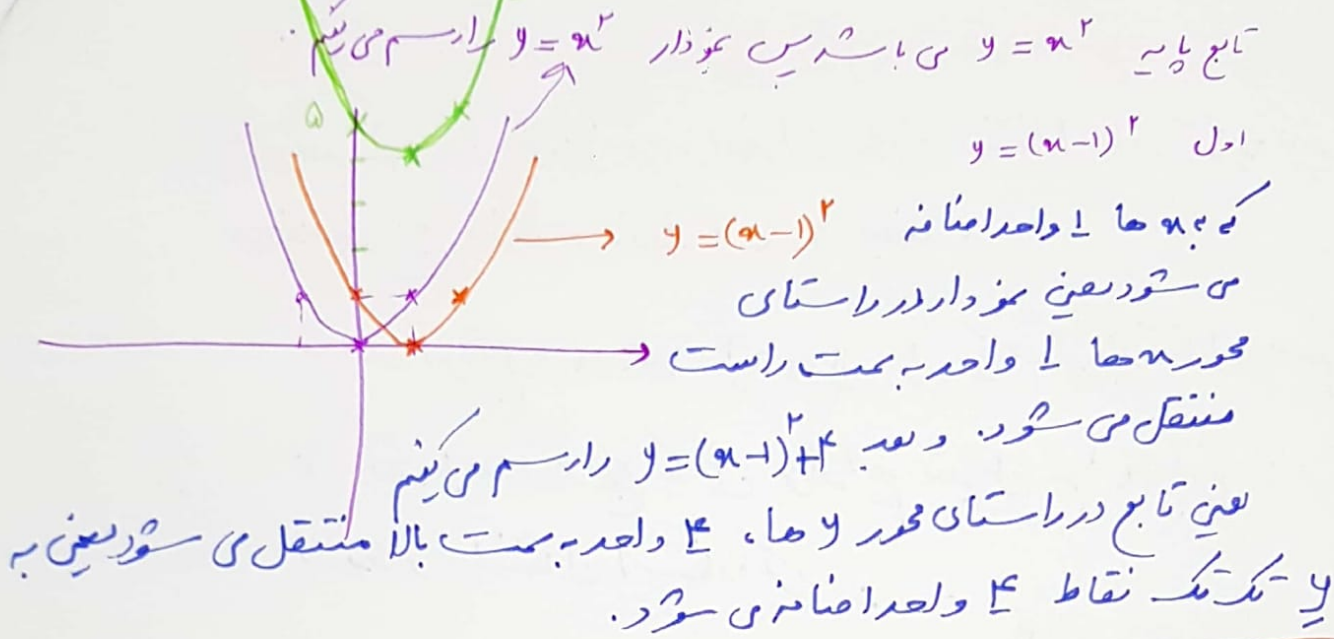 تابع پایه y = x² می باشد پس نمودار y = x² را رسم می کنیم.
اول y = (x-1)²
۵
که به x ها ۱ واحد اضافه
y = (x-1)²
می شود یعنی نمودار در راستای
محور x ها ۱ واحد به سمت راست
منتقل می شود. و بعد y = (x-1)²+۴ را رسم می کنیم
یعنی تابع در راستای محور y ها، ۴ واحد به سمت بالا منتقل می شود یعنی به
y تک تک نقاط ۴ واحد اضافه می شود.